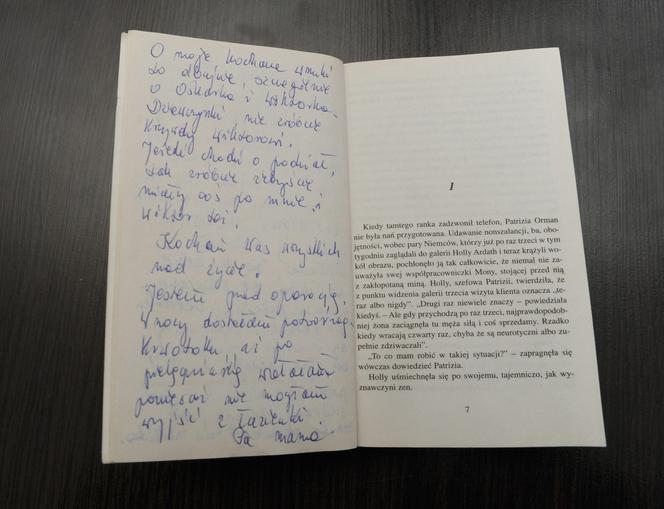 O moje kochane wnuki
to dbajcie, szczególnie
o Oskarka i Wiktorka.
Dziewczynki nie zróbcie
krzywdy Wiktorowi.
Jeżeli chodzi o podział,
tak zróbcie żebyście
miały coś po mnie i
Wiktor też.
Kocham was wszystkich
nad życie.
Jestem przed operacją.
W nocy dostałam
krwotoku, aż po
pielęgniarkę wołałam
ponieważ nie mogłam
wyjść z łazienki.
Pa mama.
1
Kiedy tamtego ranka zadzwonił telefon, Patrizia Orman
nie była nań przygotowana. Udawanie nonszalancji, ba, obo-
jętności, wobec pary Niemców, którzy już po raz trzeci w tym
tygodniu zaglądali do galerii Holly Ardath i teraz krążyli wo-
kół obrazu, pochłonęło ją tak całkowicie, że niemal nie za-
uważyła swej współpracowniczki Mony, stojącej przed nią
z zakłopotaną miną. Holly, szefowa Patrizii, twierdziła, że
z punktu widzenia galerii trzecia wizyta klienta oznacza „te-
raz albo nigdy”. „Drugi raz niewiele znaczy – powiedziała
kiedyś. – Ale gdy przychodzą po raz trzeci, najprawdopodob-
niej żona zaciągnęła tu męża siłą i coś sprzedamy. Rzadko
kiedy wracają czwarty raz, chyba że są neurotyczni albo zu-
pełnie zdziwaczali”.
„To co mam robić w takiej sytuacji?” – zapragnęła się
wówczas dowiedzieć Patrizia.
Holly uśmiechnęła się po swojemu, tajemniczo, jak wy-
znawczyni zen.
7